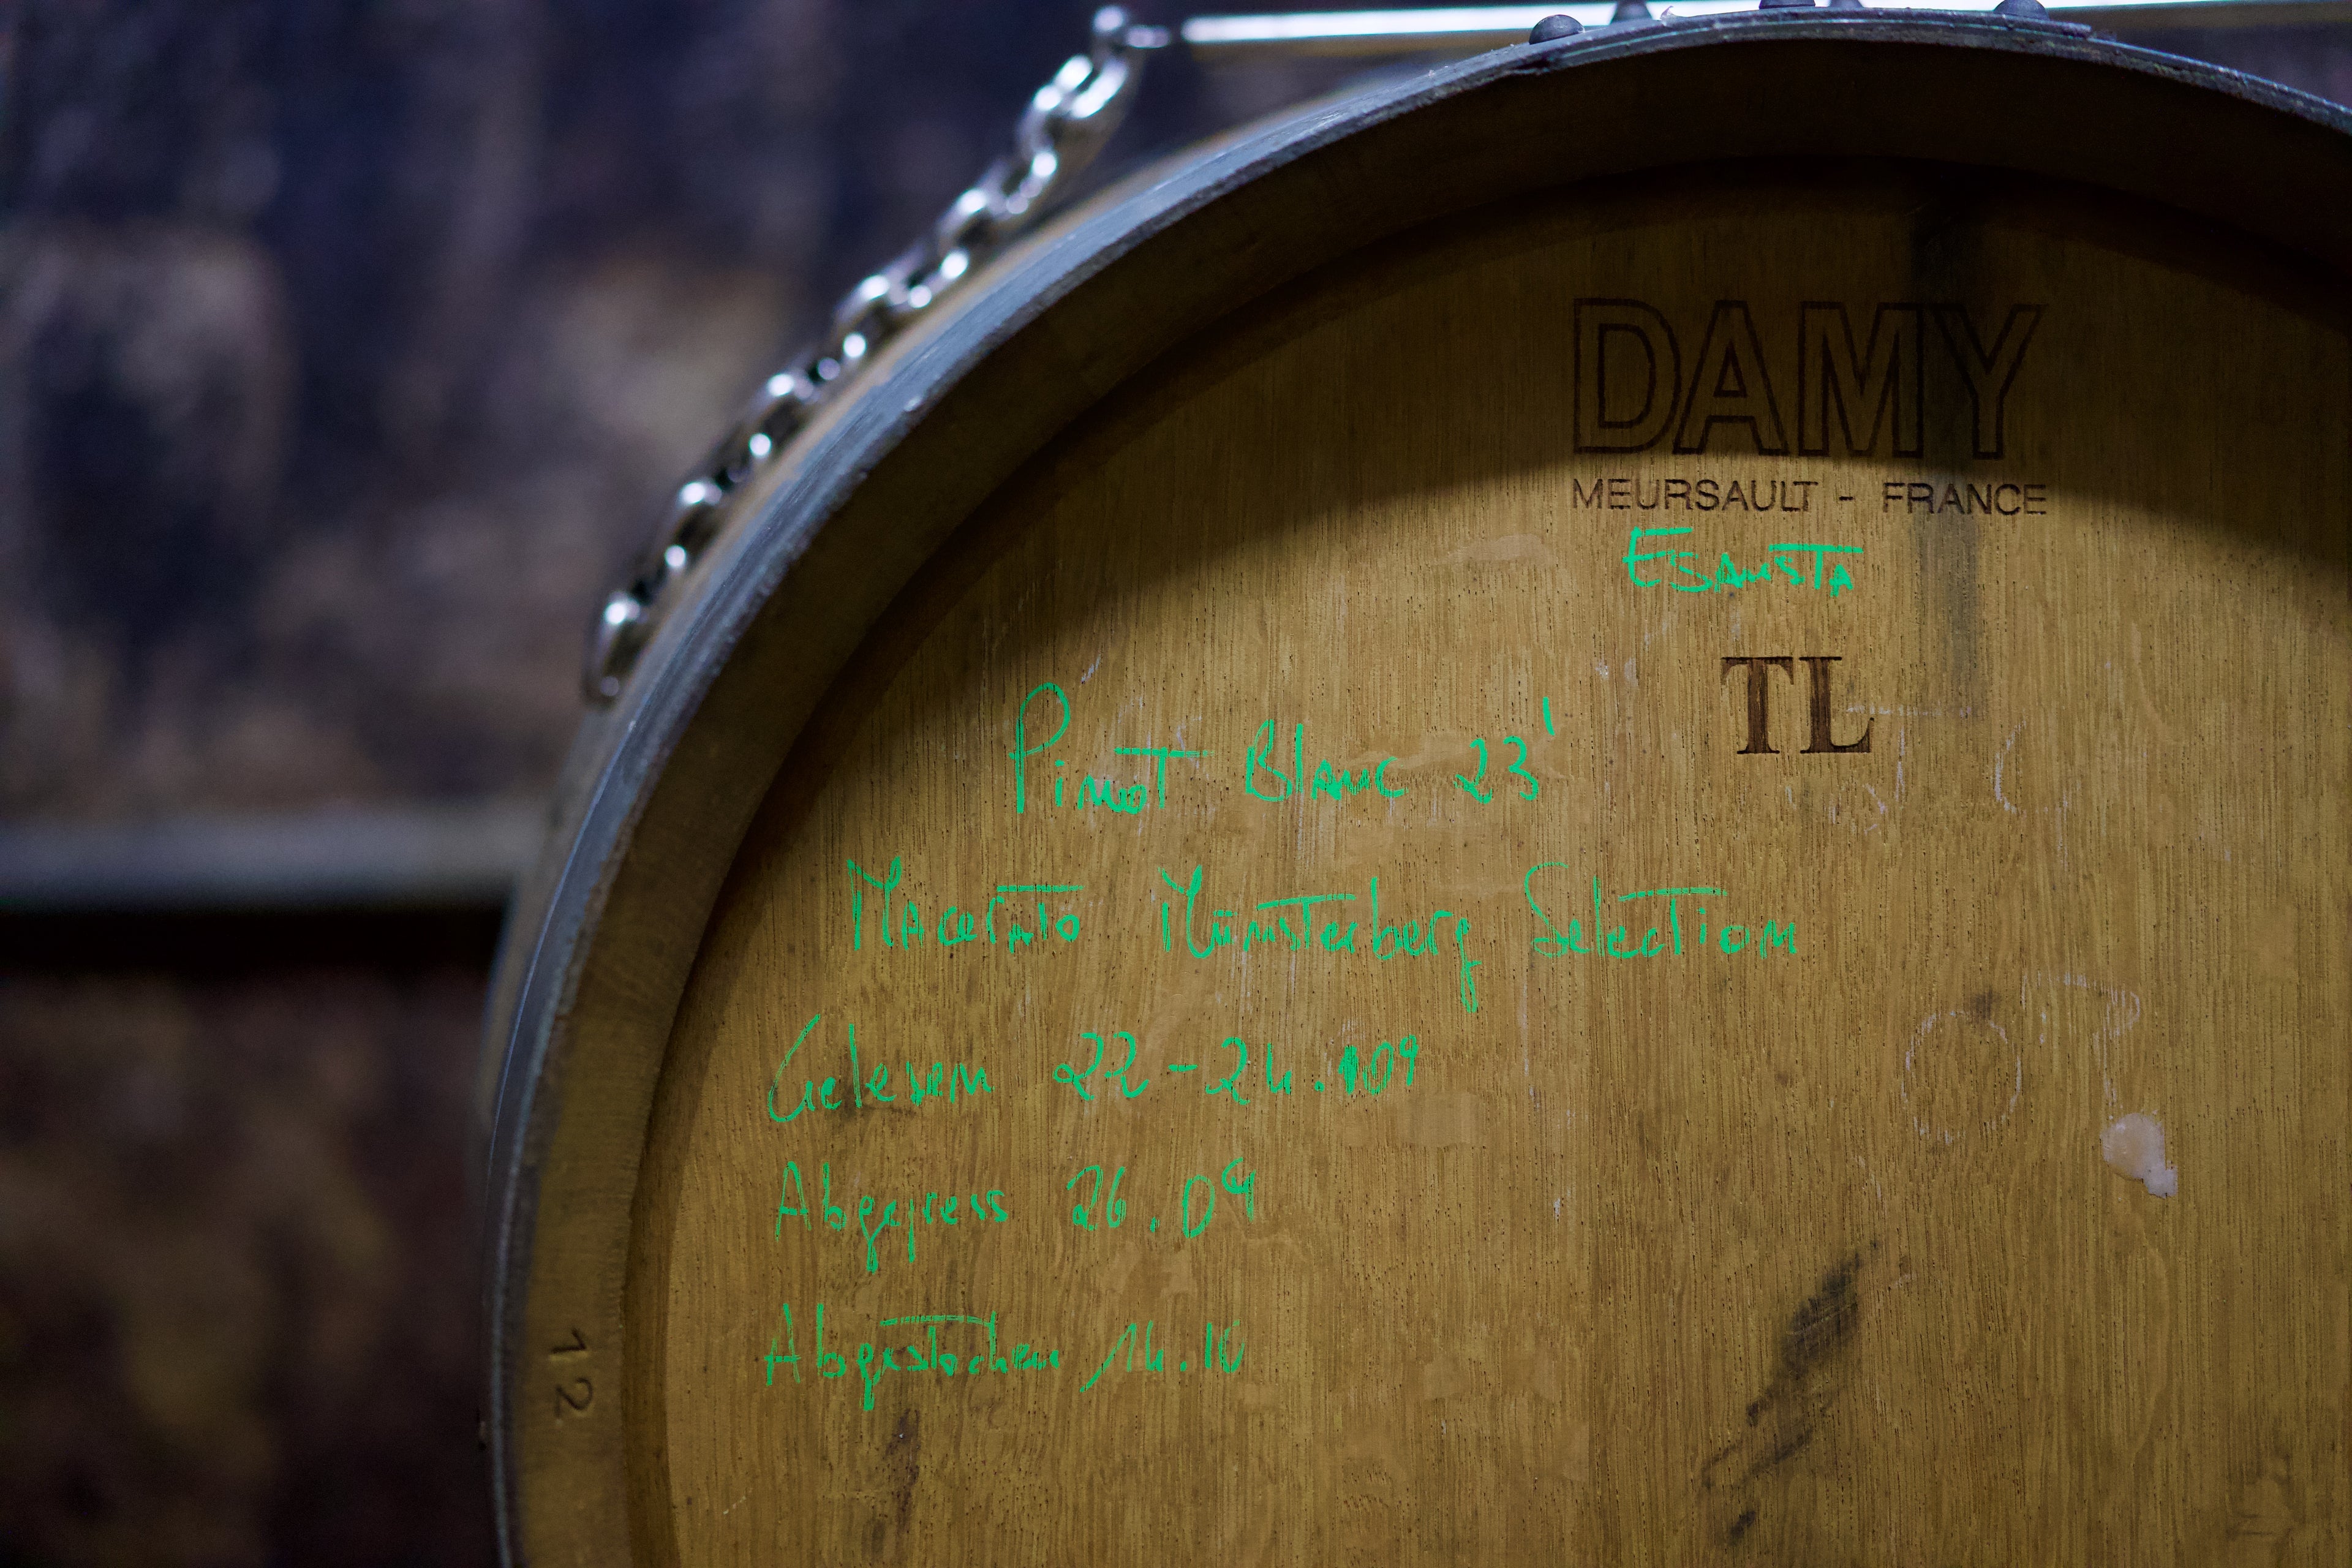 DAMY
MEURSAULT - FRANCE
TL
Pinot Blanc 23'
Macerato Münsterberg Selection
Gelesen 22-24.09
Abgepress 26.09
Abgestochen 14.10
12